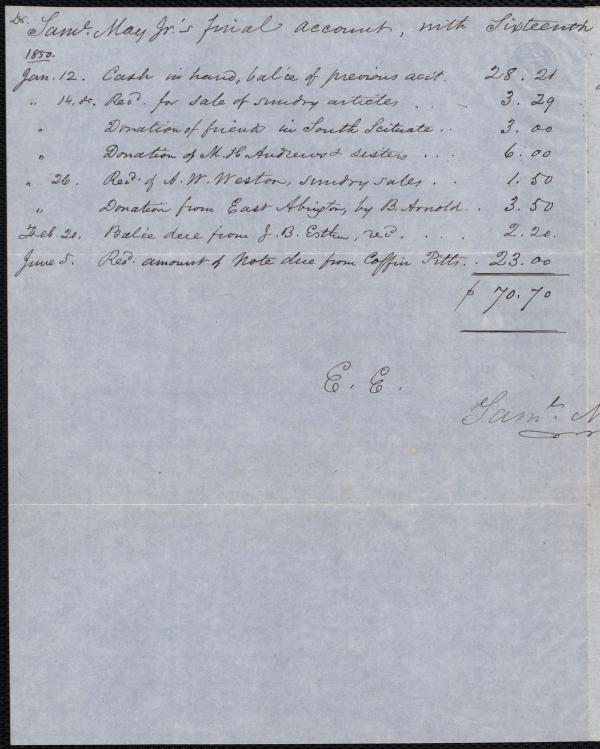 Dr. Saml. May Jr.'s final account, with Sixteenth
1850.
Jan. 12. Cash in hand, balce of previous acct. 28.21
" 14. &c. Recd. for sale of sundry articles . . 3.29
" Donation of friends in South Scituate . . 3.00
" Donation of M. H. Andrews & sisters . . . 6.00
" 26. Recd. of A. W. Weston, sundry sales . . 1.50
" Donation from East Abington, by B. Arnold . . 3.50
Feb. 20. Balce due from J. B. recd. . . . . 2.20
June 5. Recd. amount of Note due from Coffin Pitts . . 23.00
$ 70.70
E. E.
Saml. M